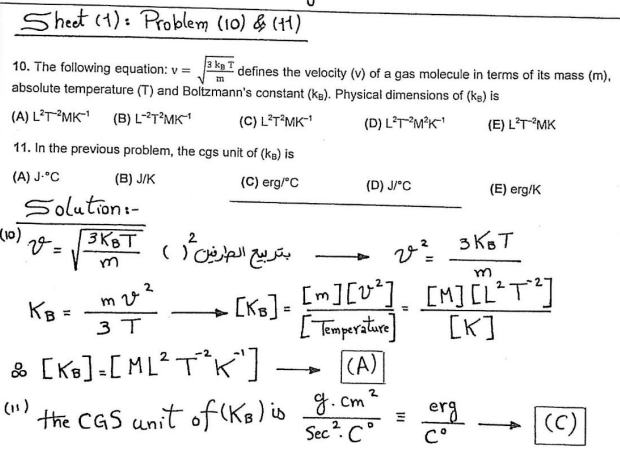 Sheet (1): Problem (10) & (11)
10. The following equation: v = √(3 k_B T / m) defines the velocity (v) of a gas molecule in terms of its mass (m),
absolute temperature (T) and Boltzmann's constant (k_B). Physical dimensions of (k_B) is
(A) L²T⁻²MK⁻¹ (B) L⁻²T²MK⁻¹ (C) L²T²MK⁻¹ (D) L²T⁻²M²K⁻¹ (E) L²T⁻²MK
11. In the previous problem, the cgs unit of (k_B) is
(A) J·°C (B) J/K (C) erg/°C (D) J/°C (E) erg/K
Solution:-
(10) v = √(3 K_B T / m) ( )² بتربيع الطرفين → v² = 3 K_B T / m
K_B = m v² / 3 T → [K_B] = [m][v²] / [Temperature] = [M][L²T⁻²] / [K]
∴ [K_B] = [ML²T⁻²K⁻¹] → (A)
(11) the CGS unit of (K_B) is g.cm² / Sec².C° ≡ erg / C° → (C)